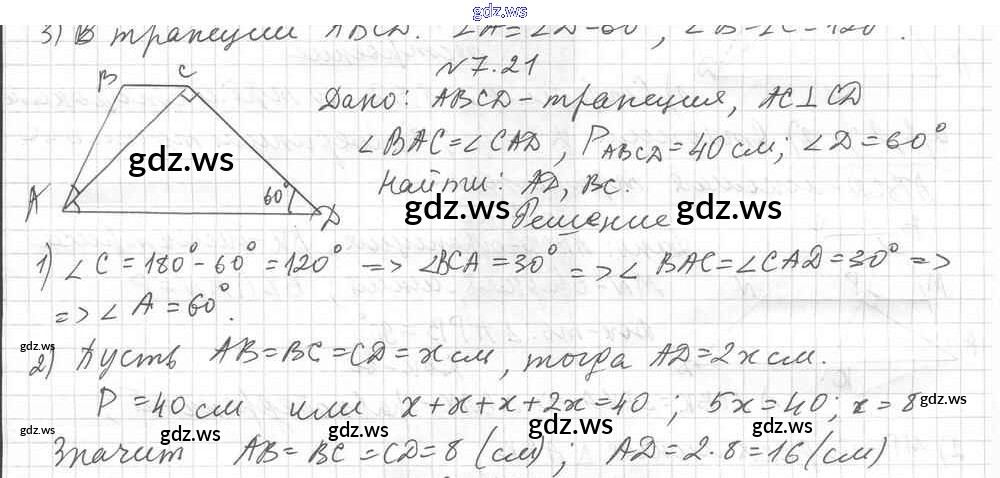 gdz.ws
3) В трапеции ABCD. ∠A=∠D=60°, ∠B=∠C=120°.
№7.21
B C
Дано: ABCD – трапеция, AC⊥CD
∠BAC=∠CAD, P_ABCD=40 см; ∠D=60°
gdz.ws
A 60° D
Найти: AD, BC.
gdz.ws gdz.ws
Решение
1) ∠C=180°-60°=120° => ∠BCA=30° => ∠BAC=∠CAD=30° =>
=> ∠A=60°.
gdz.ws
2) Пусть AB=BC=CD=x см, тогда AD=2x см.
P=40 см или x+x+x+2x=40; 5x=40; x=8
gdz.ws gdz.ws gdz.ws gdz.ws gdz.ws gdz.ws
Значит AB=BC=CD=8 (см); AD=2·8=16 (см)
gdz.ws gdz.ws